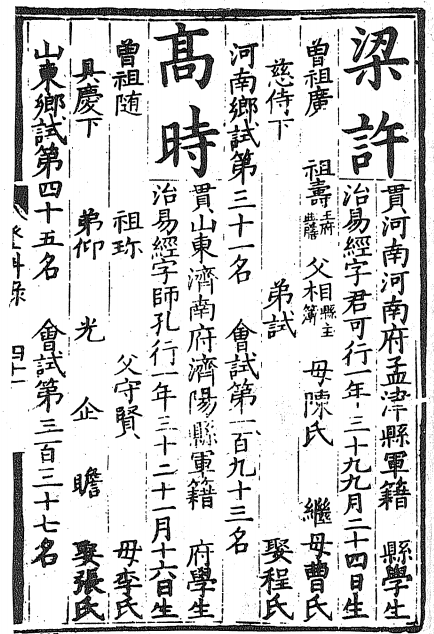 梁許
貫河南河南府孟津縣軍籍 縣學生
治易經字君可行一年三十九九月二十四日生
曾祖廣 祖壽 父相縣主簿 母陳氏 繼母曹氏
慈侍下 弟試 娶程氏
河南鄉試第三十一名 會試第一百九十三名
高時
貫山東濟南府濟陽縣軍籍 府學生
治易經字師孔行一年三十二十一月十六日生
曾祖随 祖珎 父守賢 母李氏
具慶下 弟仰 光 企 瞻 娶張氏
山東鄉試第四十五名 會試第三百三十七名
登科錄 四十一